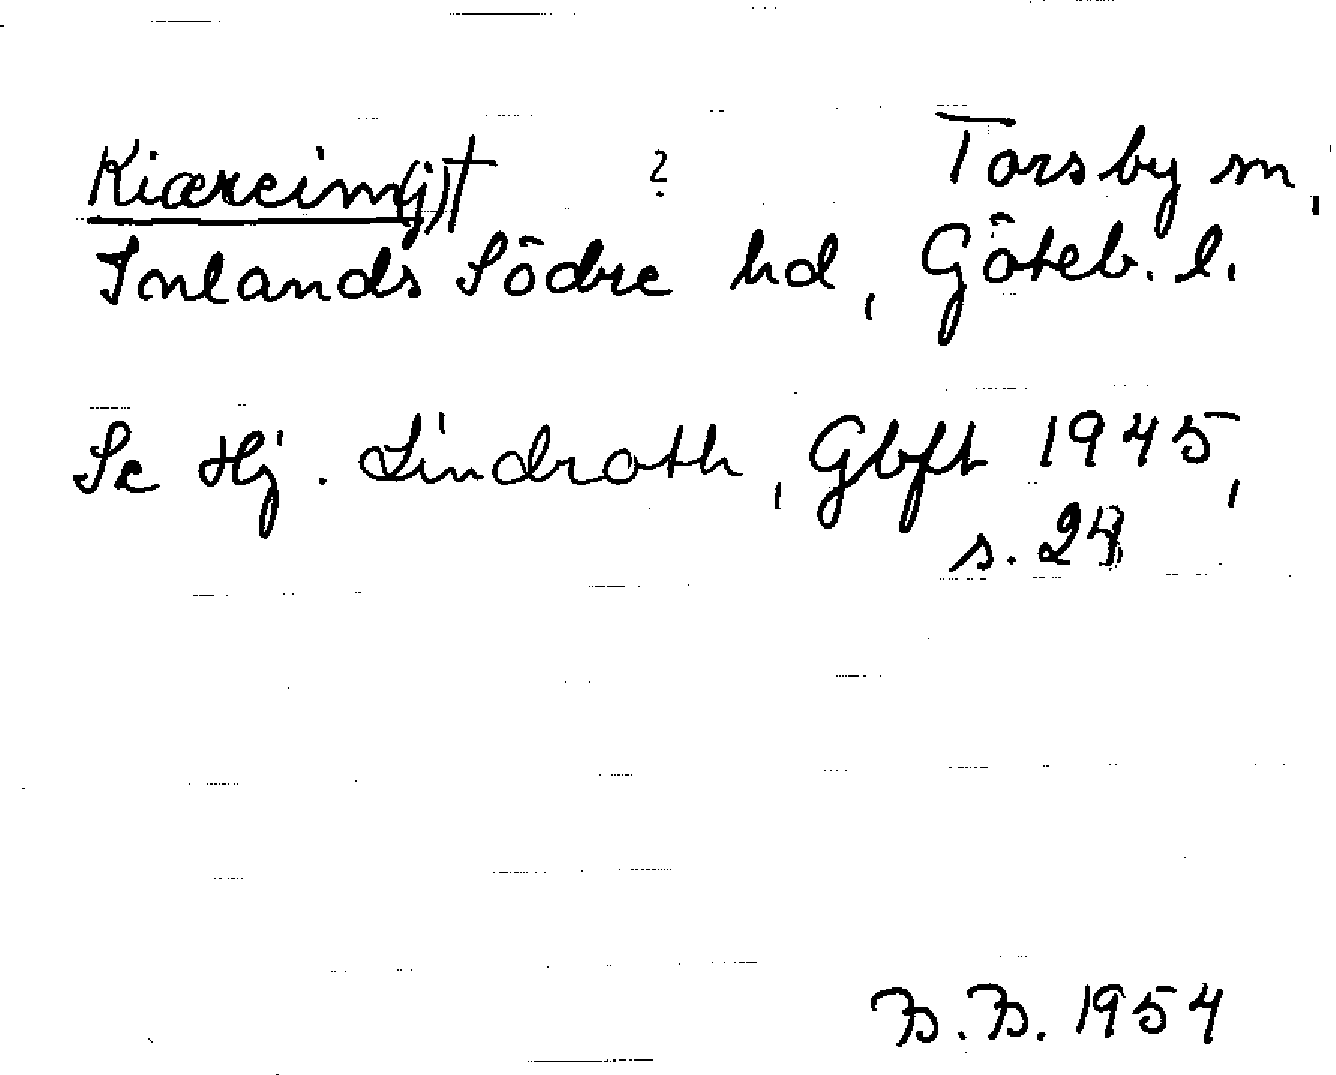 Kiæreim(j)† ? Torsby sn,
Inlands Södre hd, Göteb. l.
Se Hj. Lindroth, Gbft 1945,
s. 24
B.B. 1954